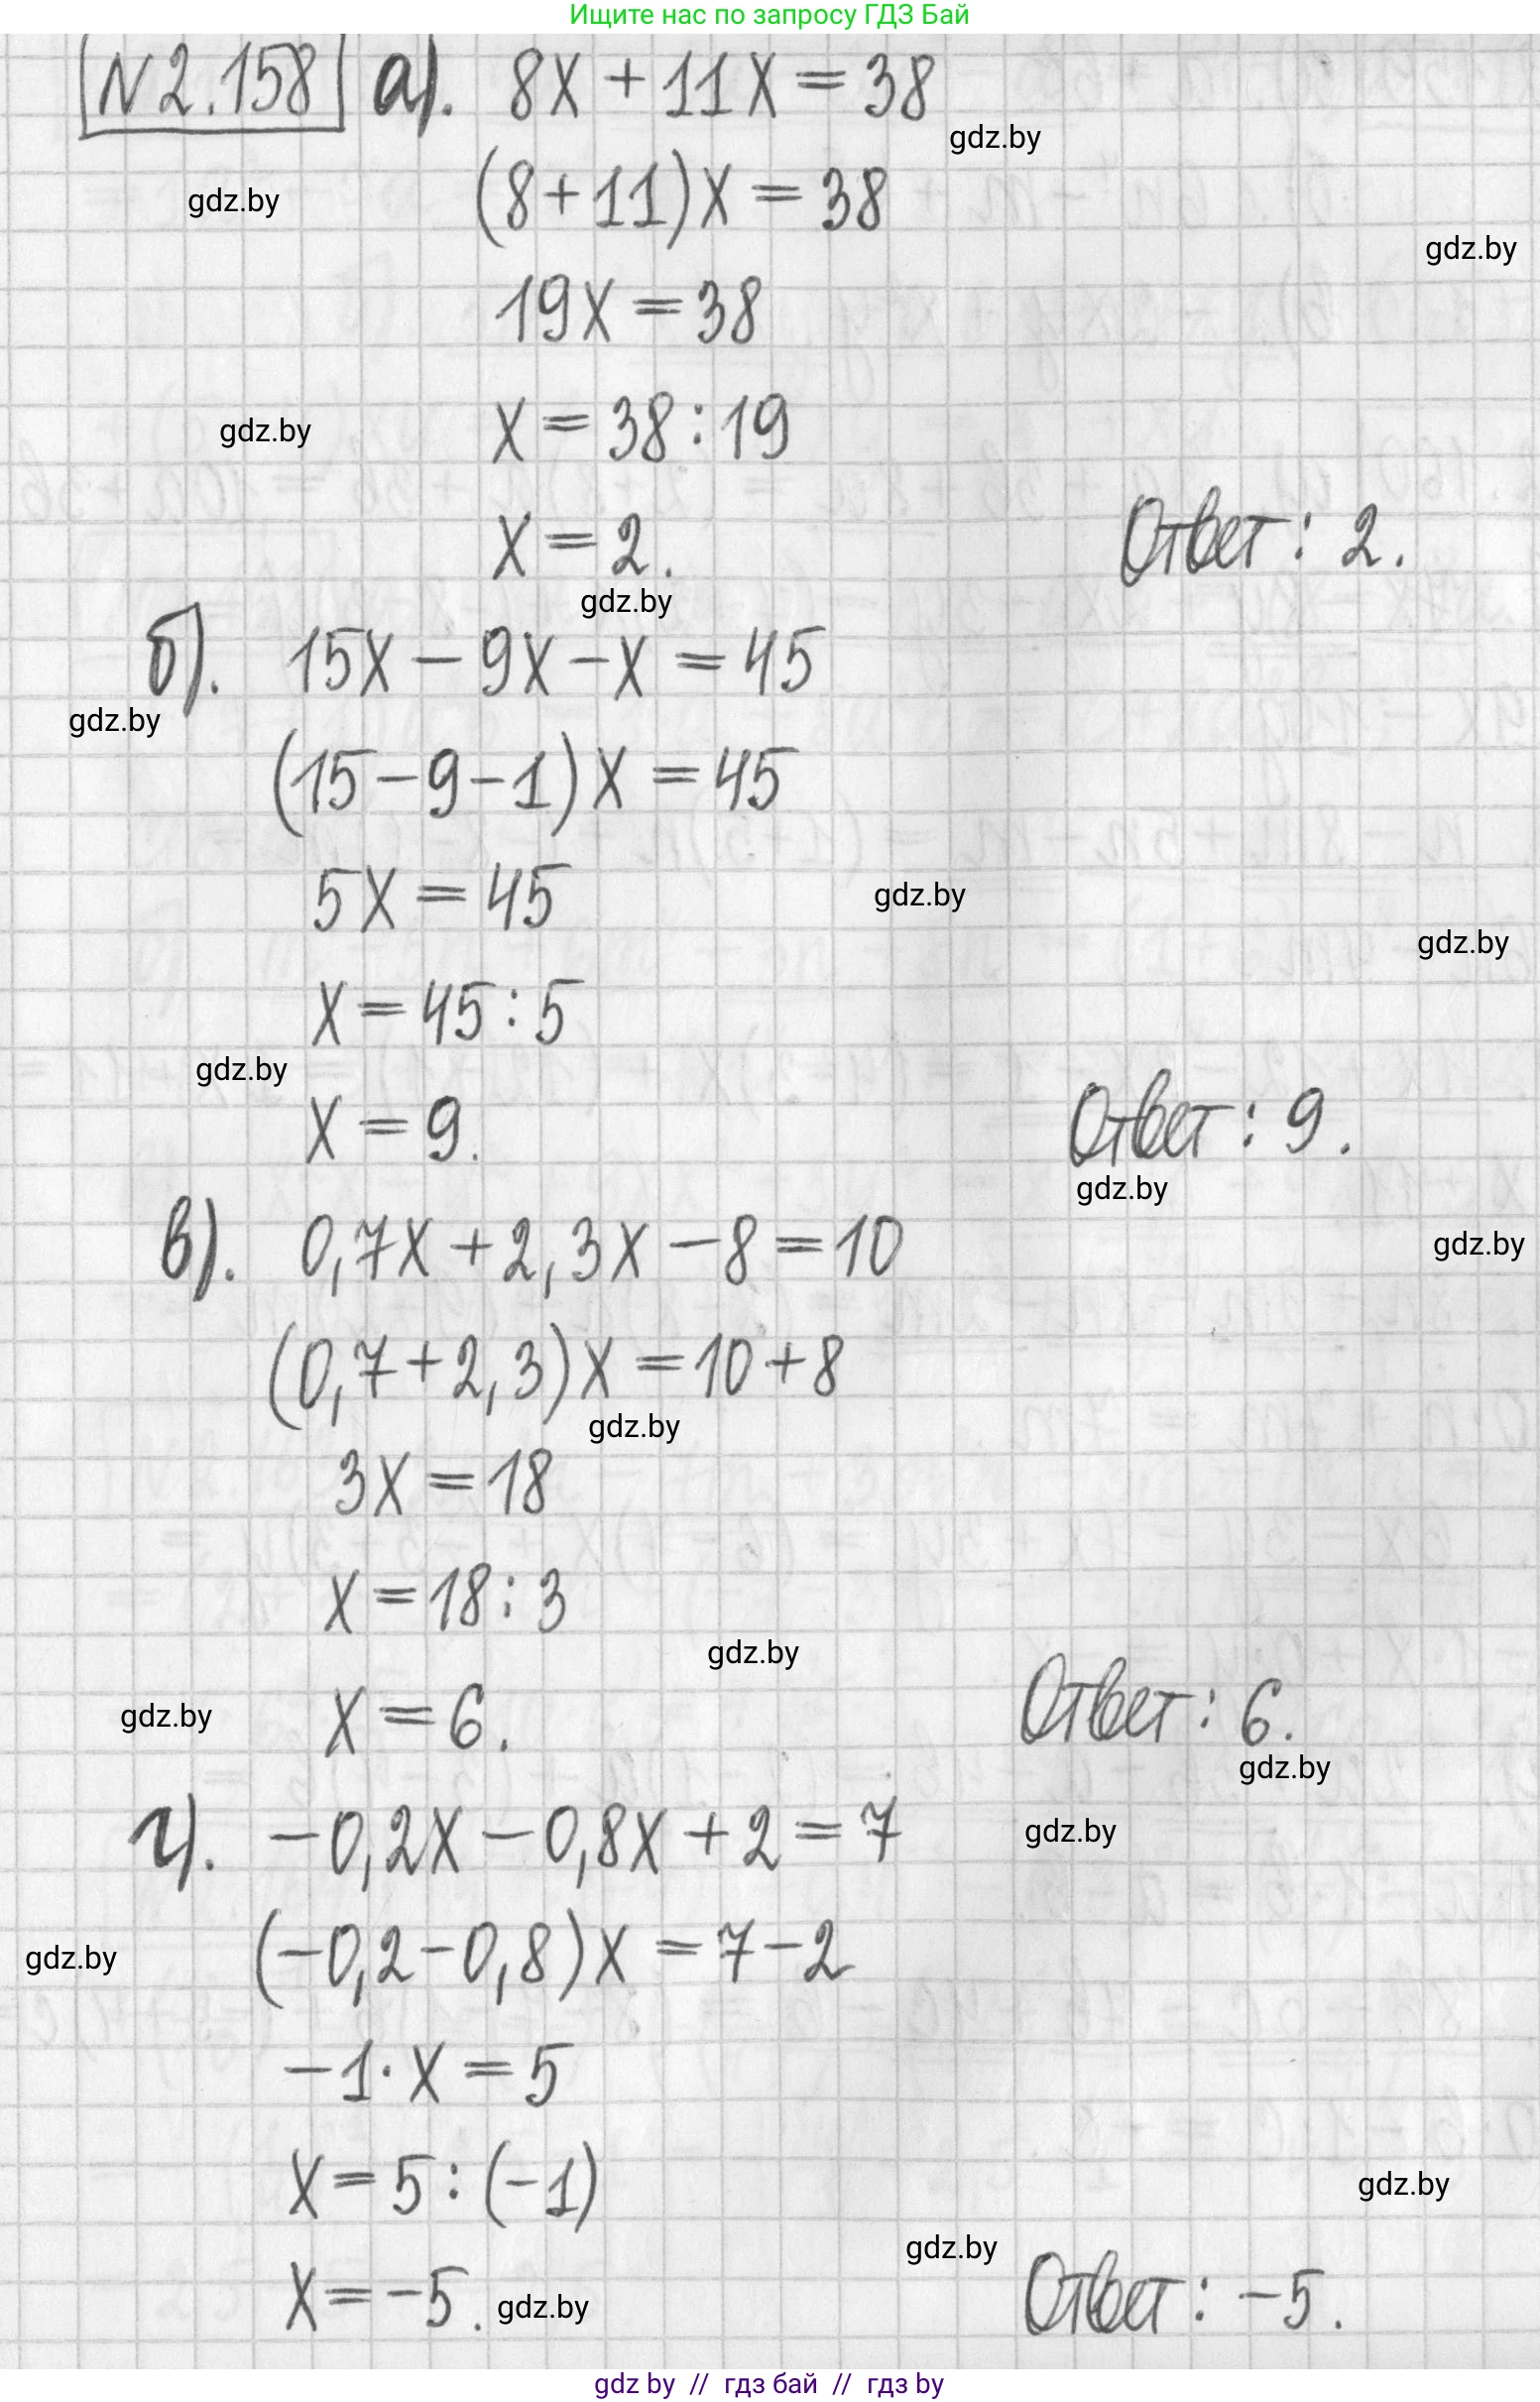 Ищите нас по запросу ГДЗ Бай
N 2.158 а). 8x + 11x = 38
gdz.by
(8+11)x = 38
gdz.by
gdz.by
19x = 38
x = 38 : 19
gdz.by
x = 2. Ответ: 2.
gdz.by
б). 15x - 9x - x = 45
gdz.by
(15 - 9 - 1)x = 45
5x = 45
gdz.by
gdz.by
x = 45 : 5
gdz.by
x = 9. Ответ: 9.
gdz.by
в). 0,7x + 2,3x - 8 = 10
gdz.by
(0,7 + 2,3)x = 10 + 8
gdz.by
3x = 18
x = 18 : 3
gdz.by
x = 6. Ответ: 6.
gdz.by
gdz.by
г). -0,2x - 0,8x + 2 = 7
gdz.by
(-0,2 - 0,8)x = 7 - 2
gdz.by
-1 · x = 5
x = 5 : (-1)
gdz.by
gdz.by
x = -5. Ответ: -5.
gdz.by
gdz by // гдз бай // гдз by